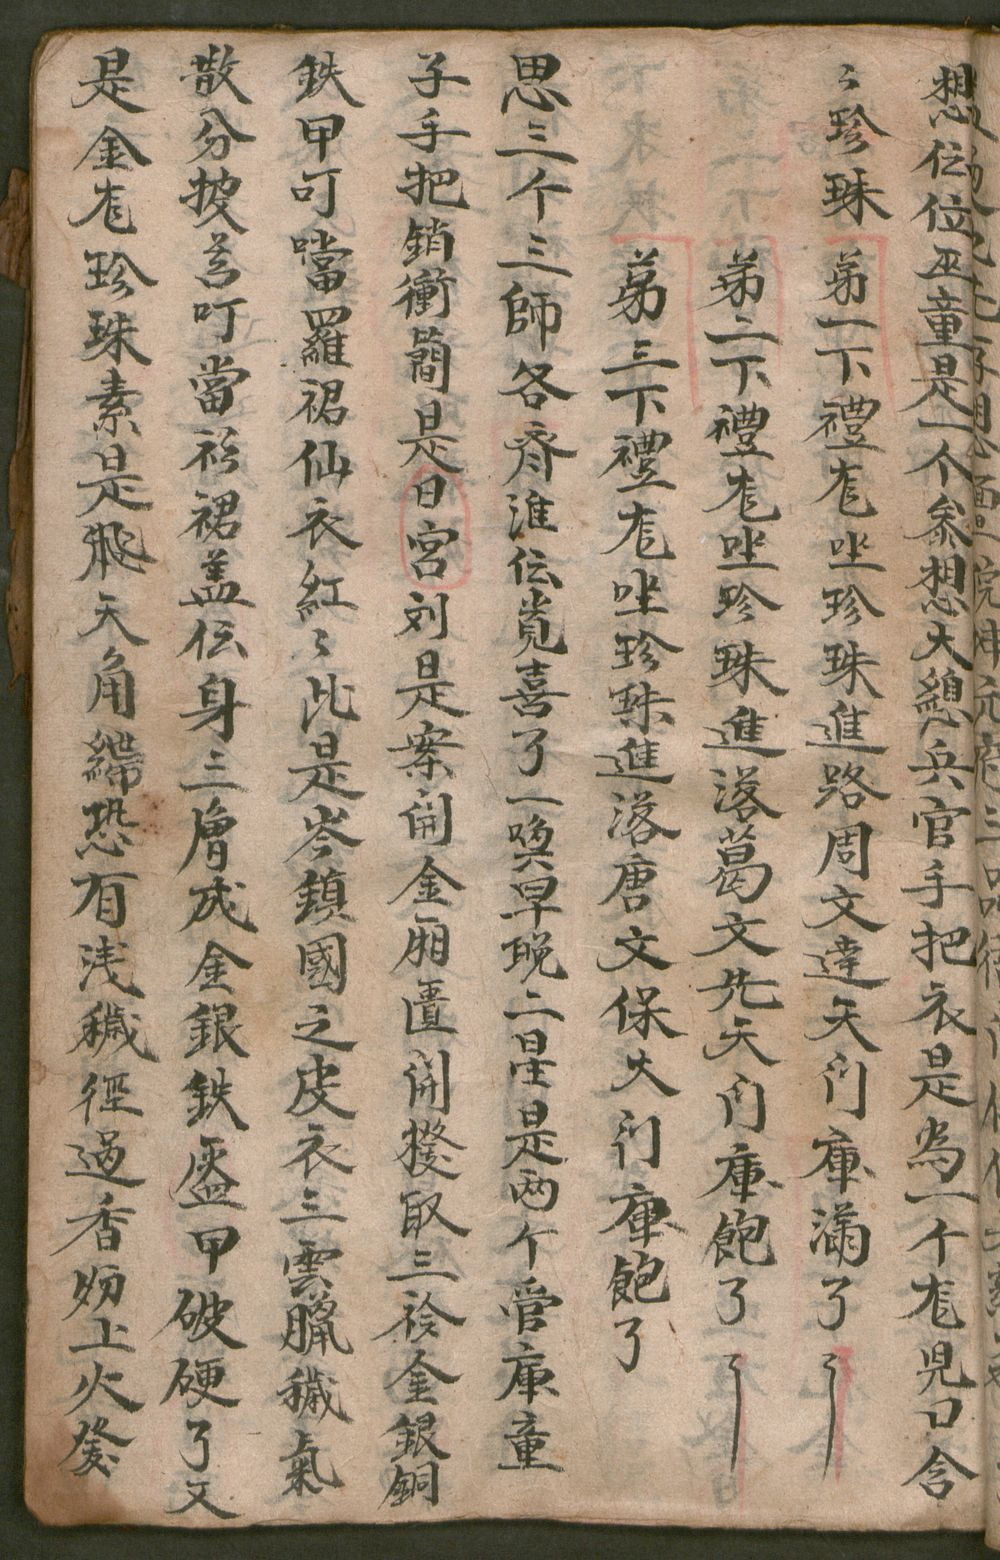 想伝位巫童是一个叅想大緫兵官手把衣是為一个厇児口含
〻珍珠 苐一下禮厇坐珍珠進路周文達天门庫滿了〻
苐二下禮厇坐珍珠進落葛文先大门庫飽了〻
苐三下禮厇坐珍珠進落唐文保大门庫飽了
思三个三師各齊淮伝覓喜了一喚早晚二星是两个管庫童
子手把銷衝簡是日宮刘是案開金厢匱開發取三衫金銀銅
鉄甲叮噹羅裙仙衣紅〻比是岑鎖國之皮衣三雲臘穢氣
散分披言叮當衫裙盖伝身三層成金銀鉄盔甲破硬了文
是金厇珍珠素是飛天角繻恐有浅穢徑過香炒上火發